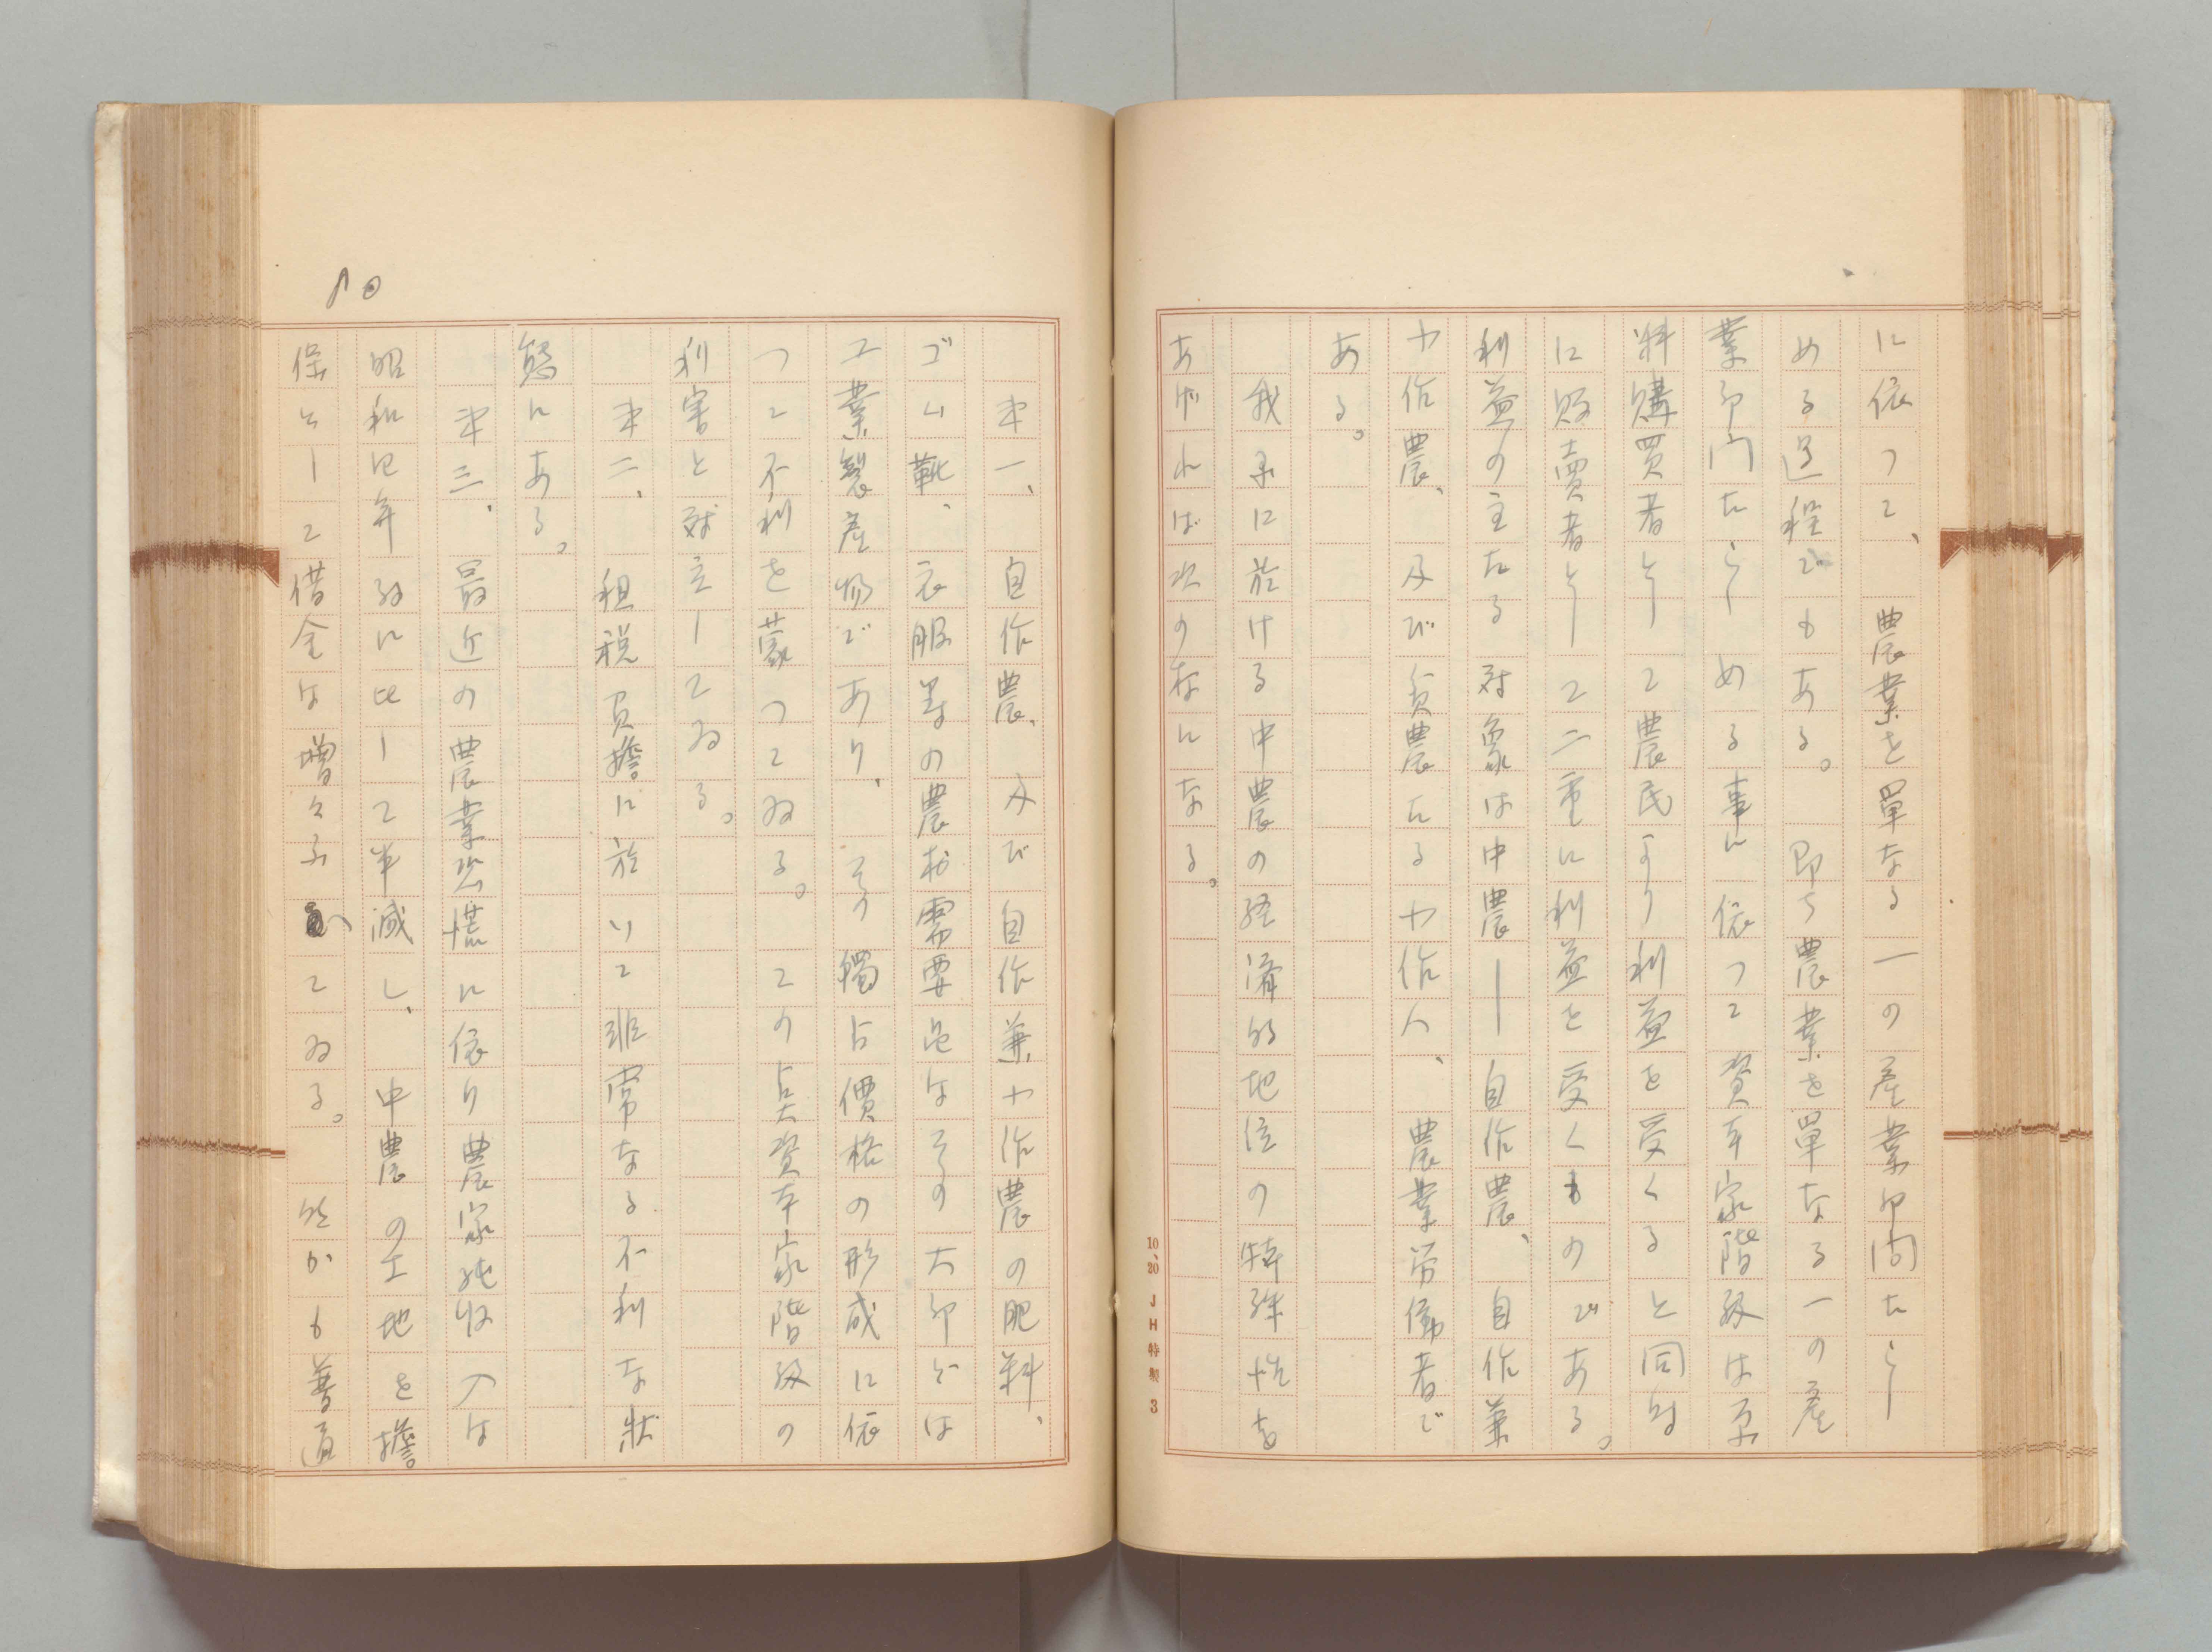 に依つて、農業を單なる一の産業部門たらし
める過程でもある。即ち農業を單なる一の産
業部門たらしめる事に依つて資本家階級は原
料購買者として農民より利益を受くると同時
に販賣者として二重に利益を受くものである。
利益の主たる対象は中農―自作農、自作兼
小作農、及び貧農たる小作人、農業労働者で
ある。
我国に於ける中農の経済的地位の特殊性を
あげれば次の様になる。
10、20 JH特製 3
第一、自作農、及び自作兼小作農の肥料、
ゴム靴、衣服等の農村需要品はその大部分は
工業製産物であり、その獨占價格の形成に依
つて不利を蒙つてゐる。この点資本家階級の
利害と対立してゐる。
第二、租税負擔に於いて非常なる不利な狀
態にある。
第三、最近の農業恐慌に依り農家純收入は
昭和四年頃に比して半減し、中農の土地を擔
保として借金は増々ふへてゐる。然かも普通